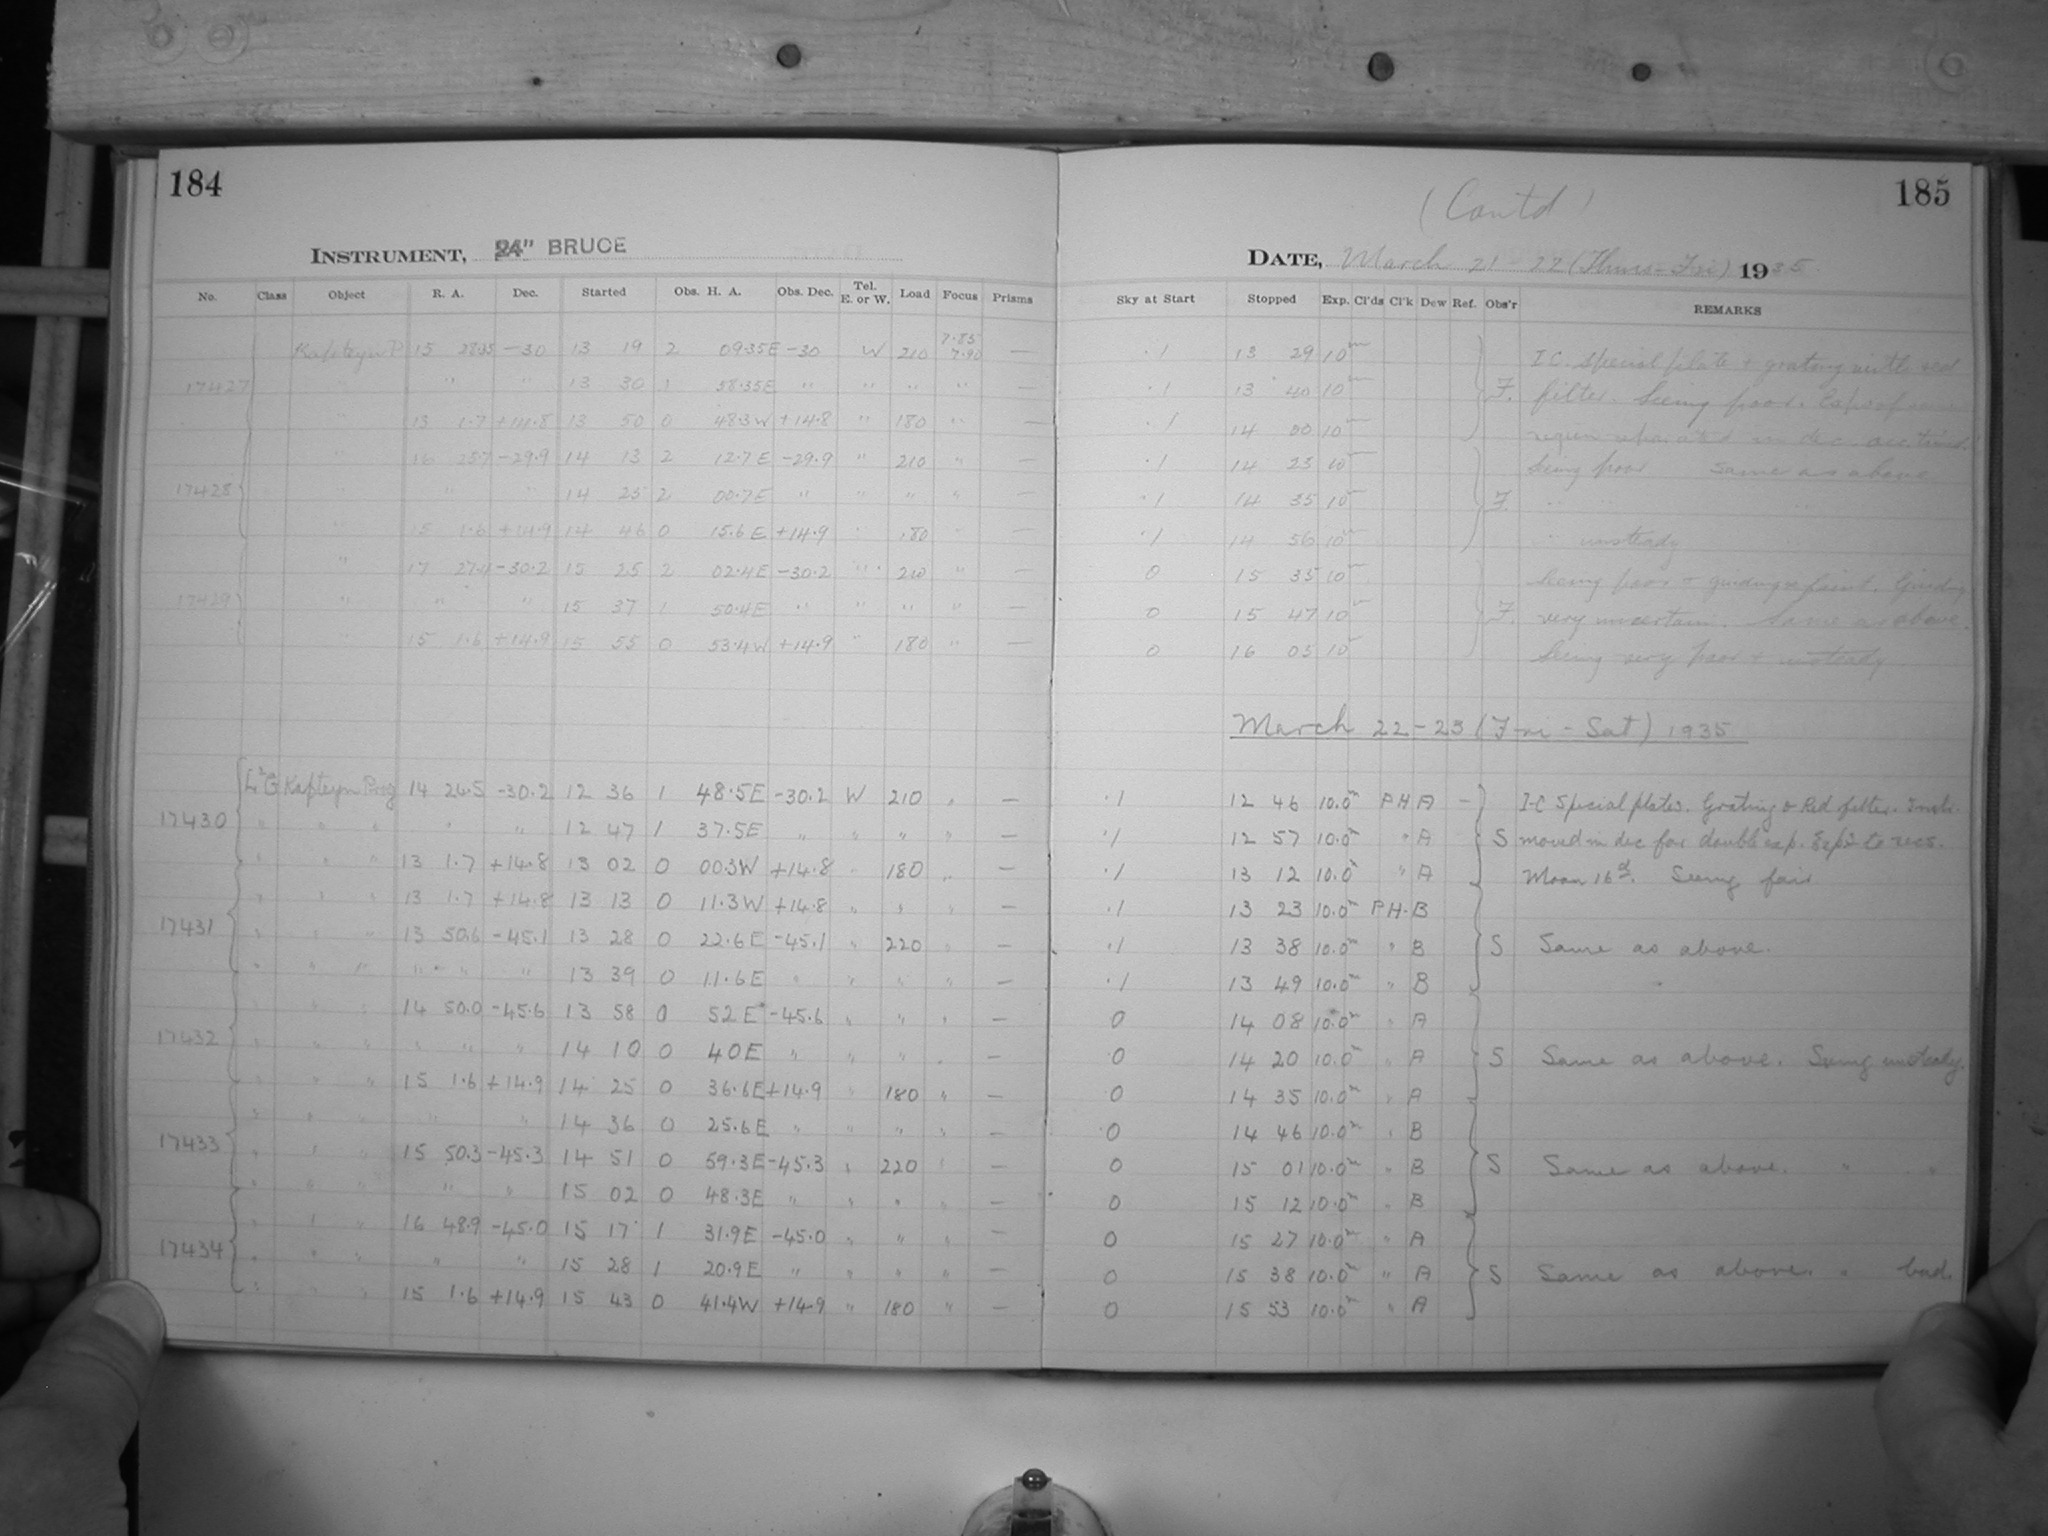 184
INSTRUMENT, 24" BRUCE
No. Class Object R. A. Dec. Started Obs. H. A. Obs. Dec. Tel. E. or W. Load Focus Prisms
Kapteyn P 15 28.35 -30 13 19 2 09.35E -30 W 210 7.85 7.90 —
17427 " " " 13 30 1 58.35E " " " " —
" 13 1.7 +14.8 13 50 0 48.3W +14.8 " 180 " —
" 16 25.7 -29.9 14 13 2 12.7E -29.9 " 210 " —
17428 " " " 14 25 2 00.7E " " " " —
" 15 1.6 +14.9 14 46 0 15.6E +14.9 " 180 " —
" 17 27.4 -30.2 15 25 2 02.4E -30.2 " 210 " —
17429 " " " 15 37 1 50.4E " " " " —
" 15 1.6 +14.9 15 55 0 53.4W +14.9 " 180 " —
Kapteyn Prog 14 24.5 -30.2 12 36 1 48.5E -30.2 W 210 " —
17430 " " " " " 12 47 1 37.5E " " " " —
" " " 13 1.7 +14.8 13 02 0 00.3W +14.8 " 180 " —
" " " 13 1.7 +14.8 13 13 0 11.3W +14.8 " " " —
17431 " " " 13 50.6 -45.1 13 28 0 22.6E -45.1 " 220 " —
" " " " " " 13 39 0 11.6E " " " " —
" " 14 50.0 -45.6 13 58 0 52E -45.6 " " " —
17432 " " " " " " 14 10 0 40E " " " " —
" " " 15 1.6 +14.9 14 25 0 36.6E +14.9 " 180 " —
" " " " " 14 36 0 25.6E " " " " —
17433 " " " 15 50.3 -45.3 14 51 0 59.3E -45.3 " 220 " —
" " " " " 15 02 0 48.3E " " " " —
" " " 16 48.9 -45.0 15 17 1 31.9E -45.0 " " " —
17434 " " " " " 15 28 1 20.9E " " " " —
" " " 15 1.6 +14.9 15 43 0 41.4W +14.9 " 180 " —
185
(Contd)
DATE, March 21-22 (Thurs-Fri) 1935
Sky at Start Stopped Exp. Cl'ds Cl'k Dew Ref. Obs'r REMARKS
.1 13 29 10m I.C. special plate + grating with red
.1 13 40 10m F. filter. Seeing poor.
.1 14 00 10m in dec
.1 14 23 10m Seeing poor Same as above
.1 14 35 10m F. " "
.1 14 56 10m " unsteady
0 15 35 10m Seeing poor
0 15 47 10m F. very uncertain. Same as above.
0 16 05 10m Seeing very poor + unsteady
March 22-23 (Fri - Sat) 1935
.1 12 46 10.0m PH A - I-C Special plates. Grating & Red filter. Instr.
.1 12 57 10.0m " A S moved in dec for double exp. Exp 2 to
.1 13 12 10.0m " A Moon 16d. Seeing fair
.1 13 23 10.0m PH. B
.1 13 38 10.0m " B S Same as above.
.1 13 49 10.0m " B
0 14 08 10.0m " A
0 14 20 10.0m " A S Same as above. Seeing unsteady.
0 14 35 10.0m " A
0 14 46 10.0m " B
0 15 01 10.0m " B S Same as above. " "
0 15 12 10.0m " B
0 15 27 10.0m " A
0 15 38 10.0m " A S Same as above. " bad.
0 15 53 10.0m " A